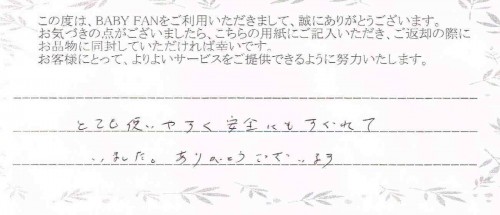 この度は、BABY FANをご利用いただきまして、誠にありがとうございます。
お気づきの点がございましたら、こちらの用紙にご記入いただき、ご返却の際に
お品物に同封していただければ幸いです。
お客様にとって、よりよいサービスをご提供できるように努力いたします。
とても使いやすく安全にもすぐれて
いました。ありがとうございます